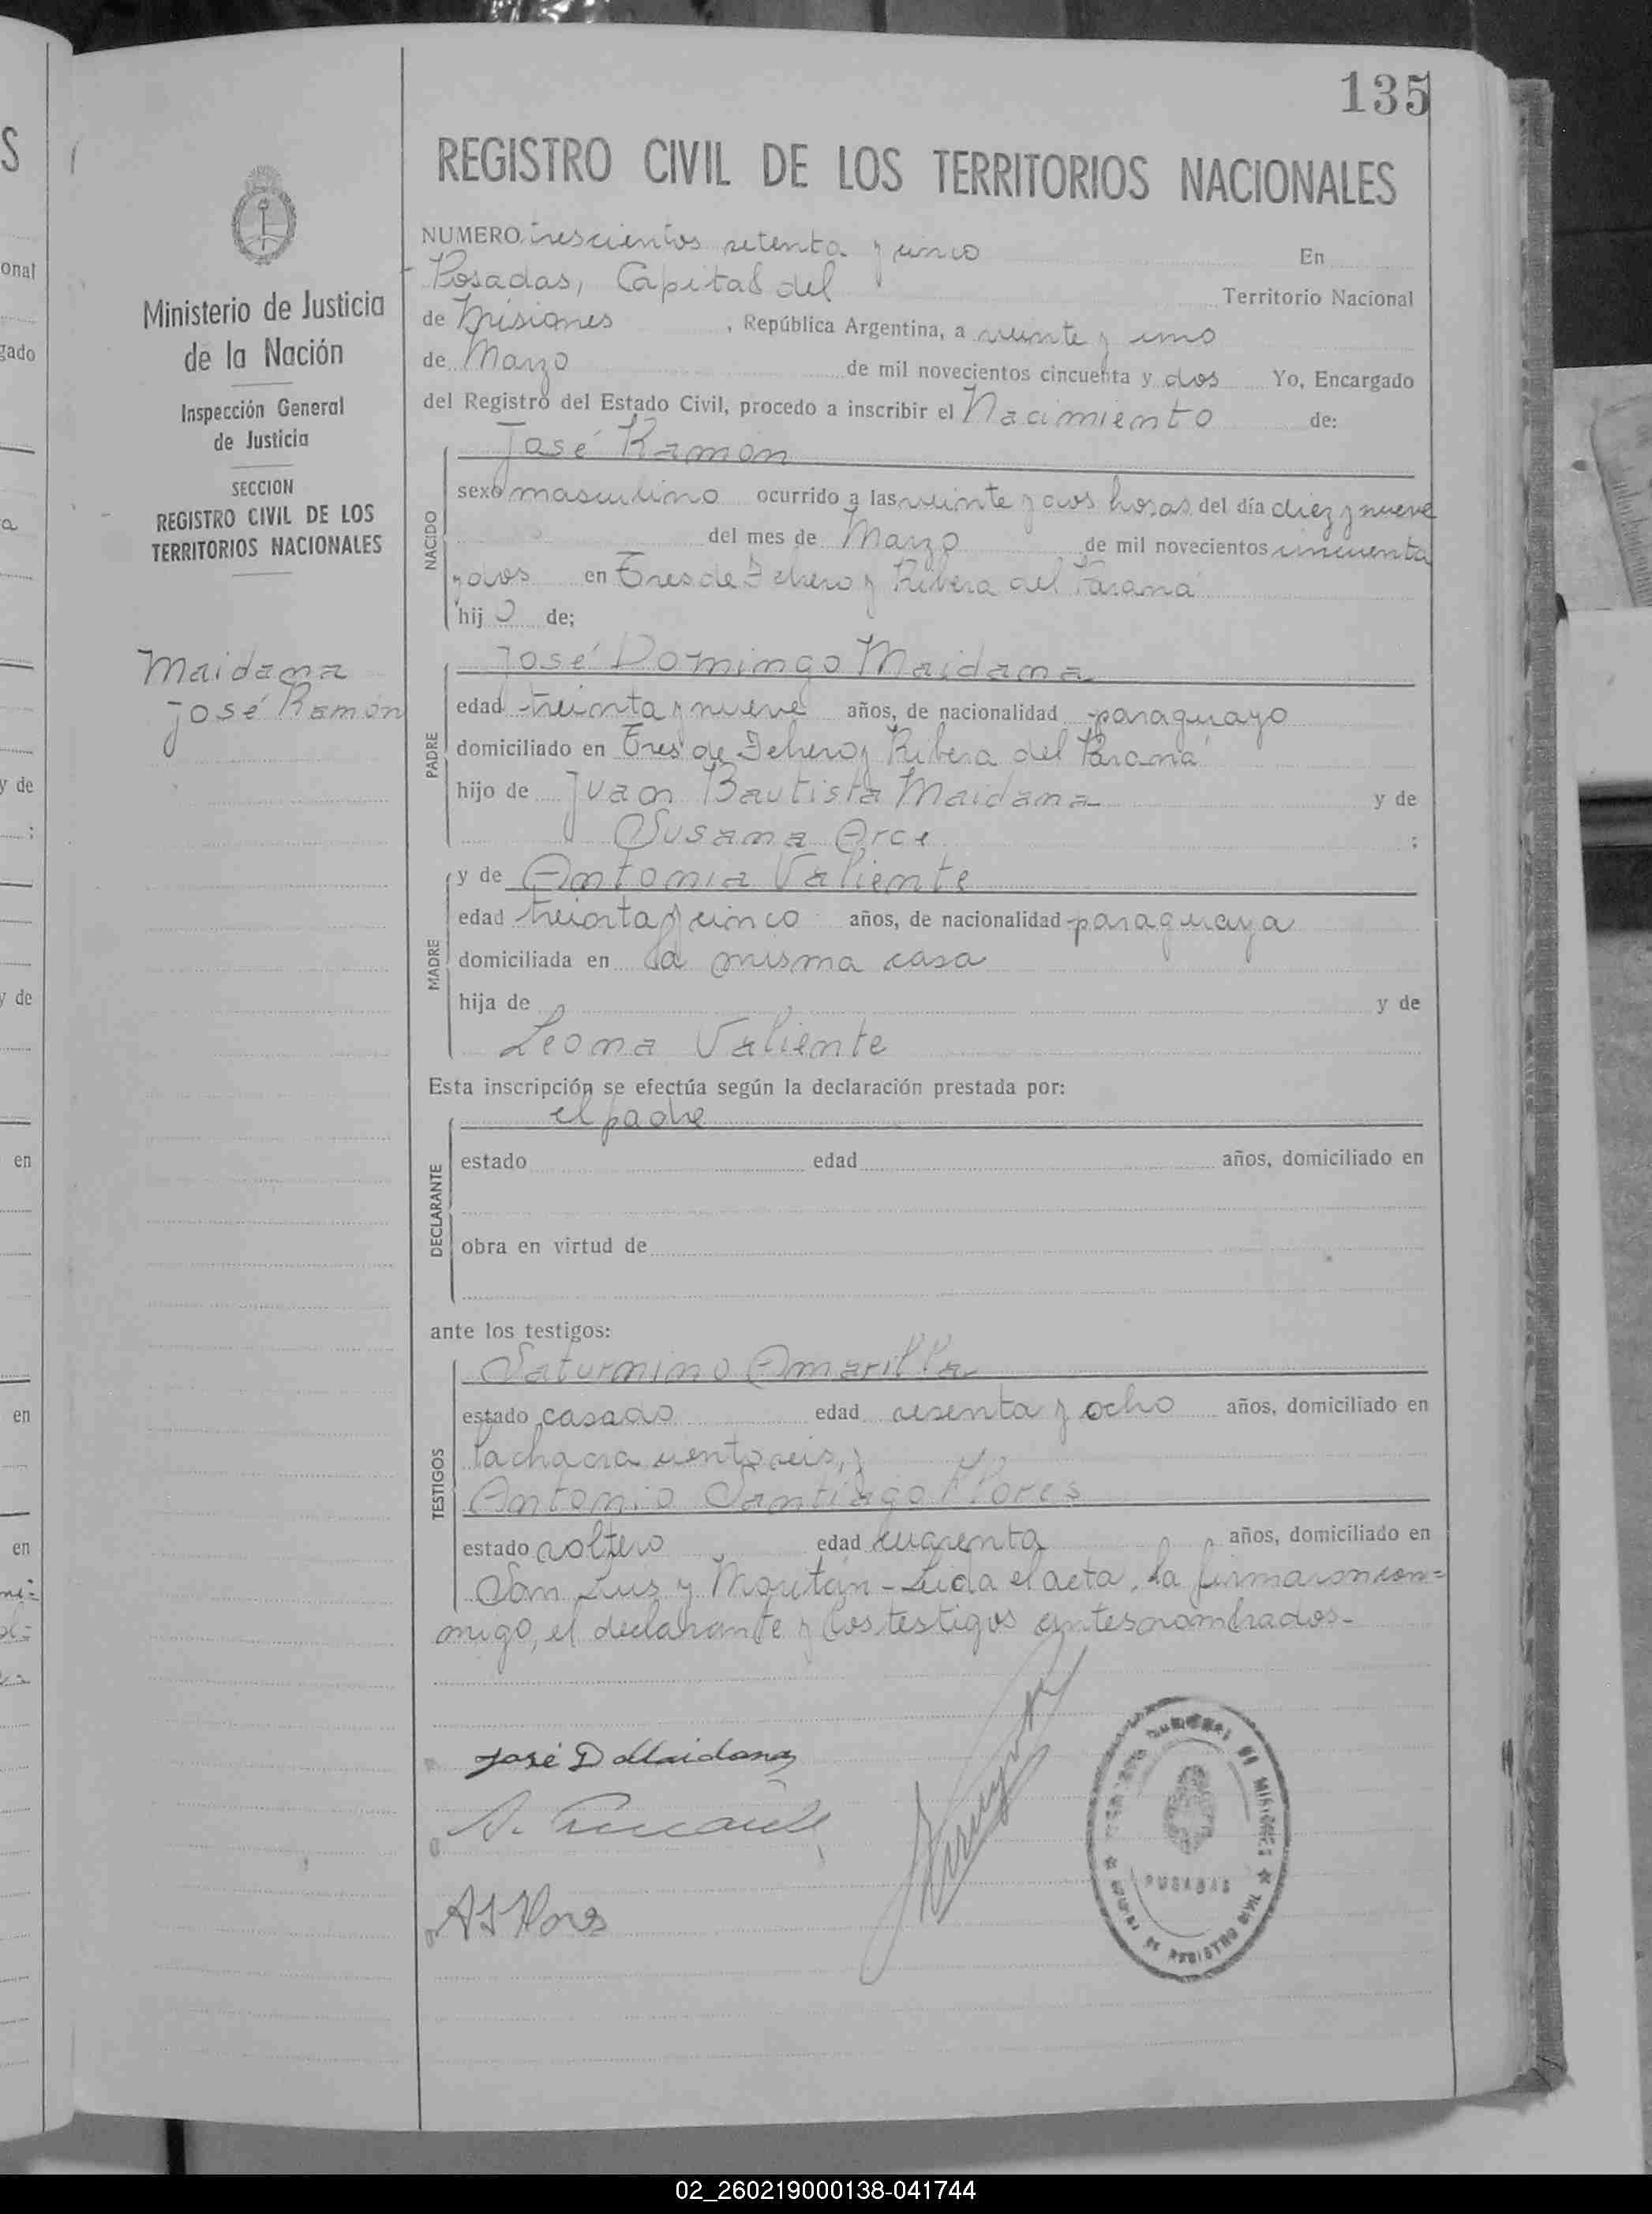 135
REGISTRO CIVIL DE LOS TERRITORIOS NACIONALES
Ministerio de Justicia
de la Nación
Inspección General
de Justicia
SECCION
REGISTRO CIVIL DE LOS
TERRITORIOS NACIONALES
Maidana
José Ramón
NUMERO trescientos setenta y uno En
Posadas, Capital del Territorio Nacional
de Misiones, República Argentina, a veinte y uno
de Marzo de mil novecientos cincuenta y dos Yo, Encargado
del Registro del Estado Civil, procedo a inscribir el Nacimiento de:
NACIDO
José Ramón
sexo masculino ocurrido a las veinte y dos horas del día diez y nueve
del mes de Marzo de mil novecientos cincuenta
y dos en Tres de Febrero y Ribera del Paraná
hijo de;
PADRE
José Domingo Maidana
edad treinta y nueve años, de nacionalidad paraguayo
domiciliado en Tres de Febrero y Ribera del Paraná
hijo de Juan Bautista Maidana y de
Susana Arce ;
MADRE
y de Antonia Valiente
edad treinta y cinco años, de nacionalidad paraguaya
domiciliada en la misma casa
hija de y de
Leona Valiente
Esta inscripción se efectúa según la declaración prestada por:
DECLARANTE
el padre
estado edad años, domiciliado en
obra en virtud de
ante los testigos:
TESTIGOS
Saturnino Amarilla
estado casado edad sesenta y ocho años, domiciliado en
la chacra ciento seis, y
Antonio Santiago Flores
estado soltero edad cuarenta años, domiciliado en
San Luis y Moritán - Leida el acta, la firmaron con=
migo, el declarante y los testigos antes nombrados.-
José D Maidana
A S Flores
MISIONES
POSADAS
REGISTRO CIVIL
onal
gado
a
y de
:
y de
en
en
en
02_260219000138-041744